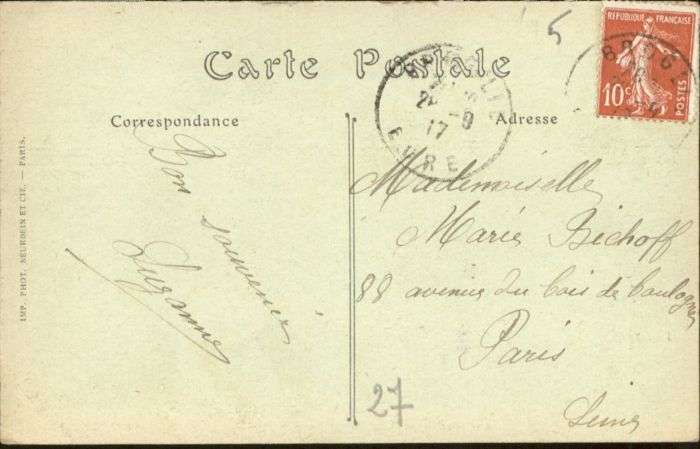 5
RÉPUBLIQUE FRANÇAISE
10c
POSTES
Carte Postale
Correspondance
Adresse
BROG
17
EURE
IMP. PHOT. NEURDEIN ET CIE. — PARIS.
Bon
souvenir
Suzanne
Mademoiselle
Marie Bichoff
88 avenue du bois de boulogne
Paris
Seine
27